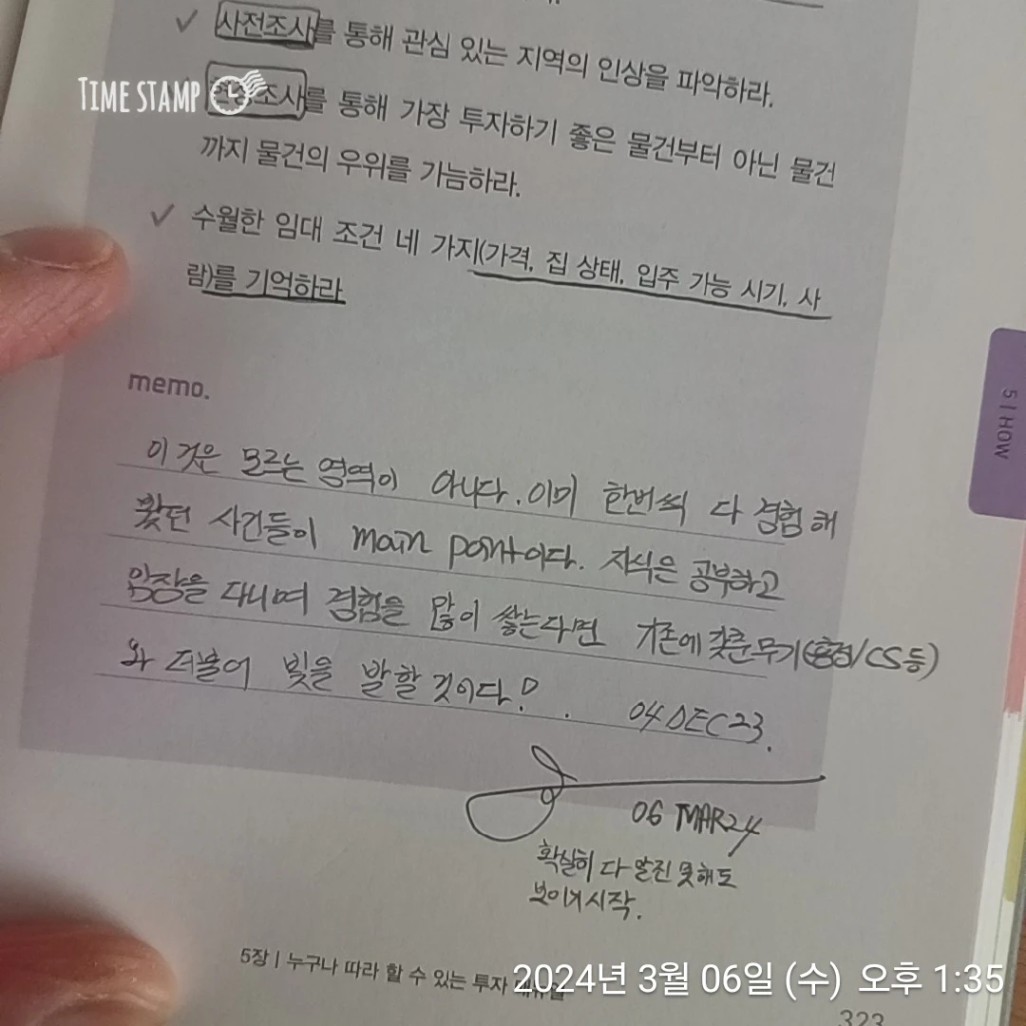 사전조사를 통해 관심 있는 지역의 인상을 파악하라.
TIME STAMP
조사를 통해 가장 투자하기 좋은 물건부터 아닌 물건
까지 물건의 우위를 가늠하라.
수월한 임대 조건 네 가지(가격, 집 상태, 입주 가능 시기, 사
람)를 기억하라
memo.
이것은 모르는 영역이 아니다. 이미 한번씩 다 경험해
봤던 사건들이 main point이다. 지식은 공부하고
임장을 다니며 경험을 많이 쌓는다면 갖춘무기( /CS등)
와 더불어 빛을 발할 것이다!
04 DEC 23.
06 MAR 24
확실히 다 알진 못해도
보이기시작.
5 | HOW
5장 | 누구나 따라 할 수 있는 투자
2024년 3월 06일 (수) 오후 1:35
323